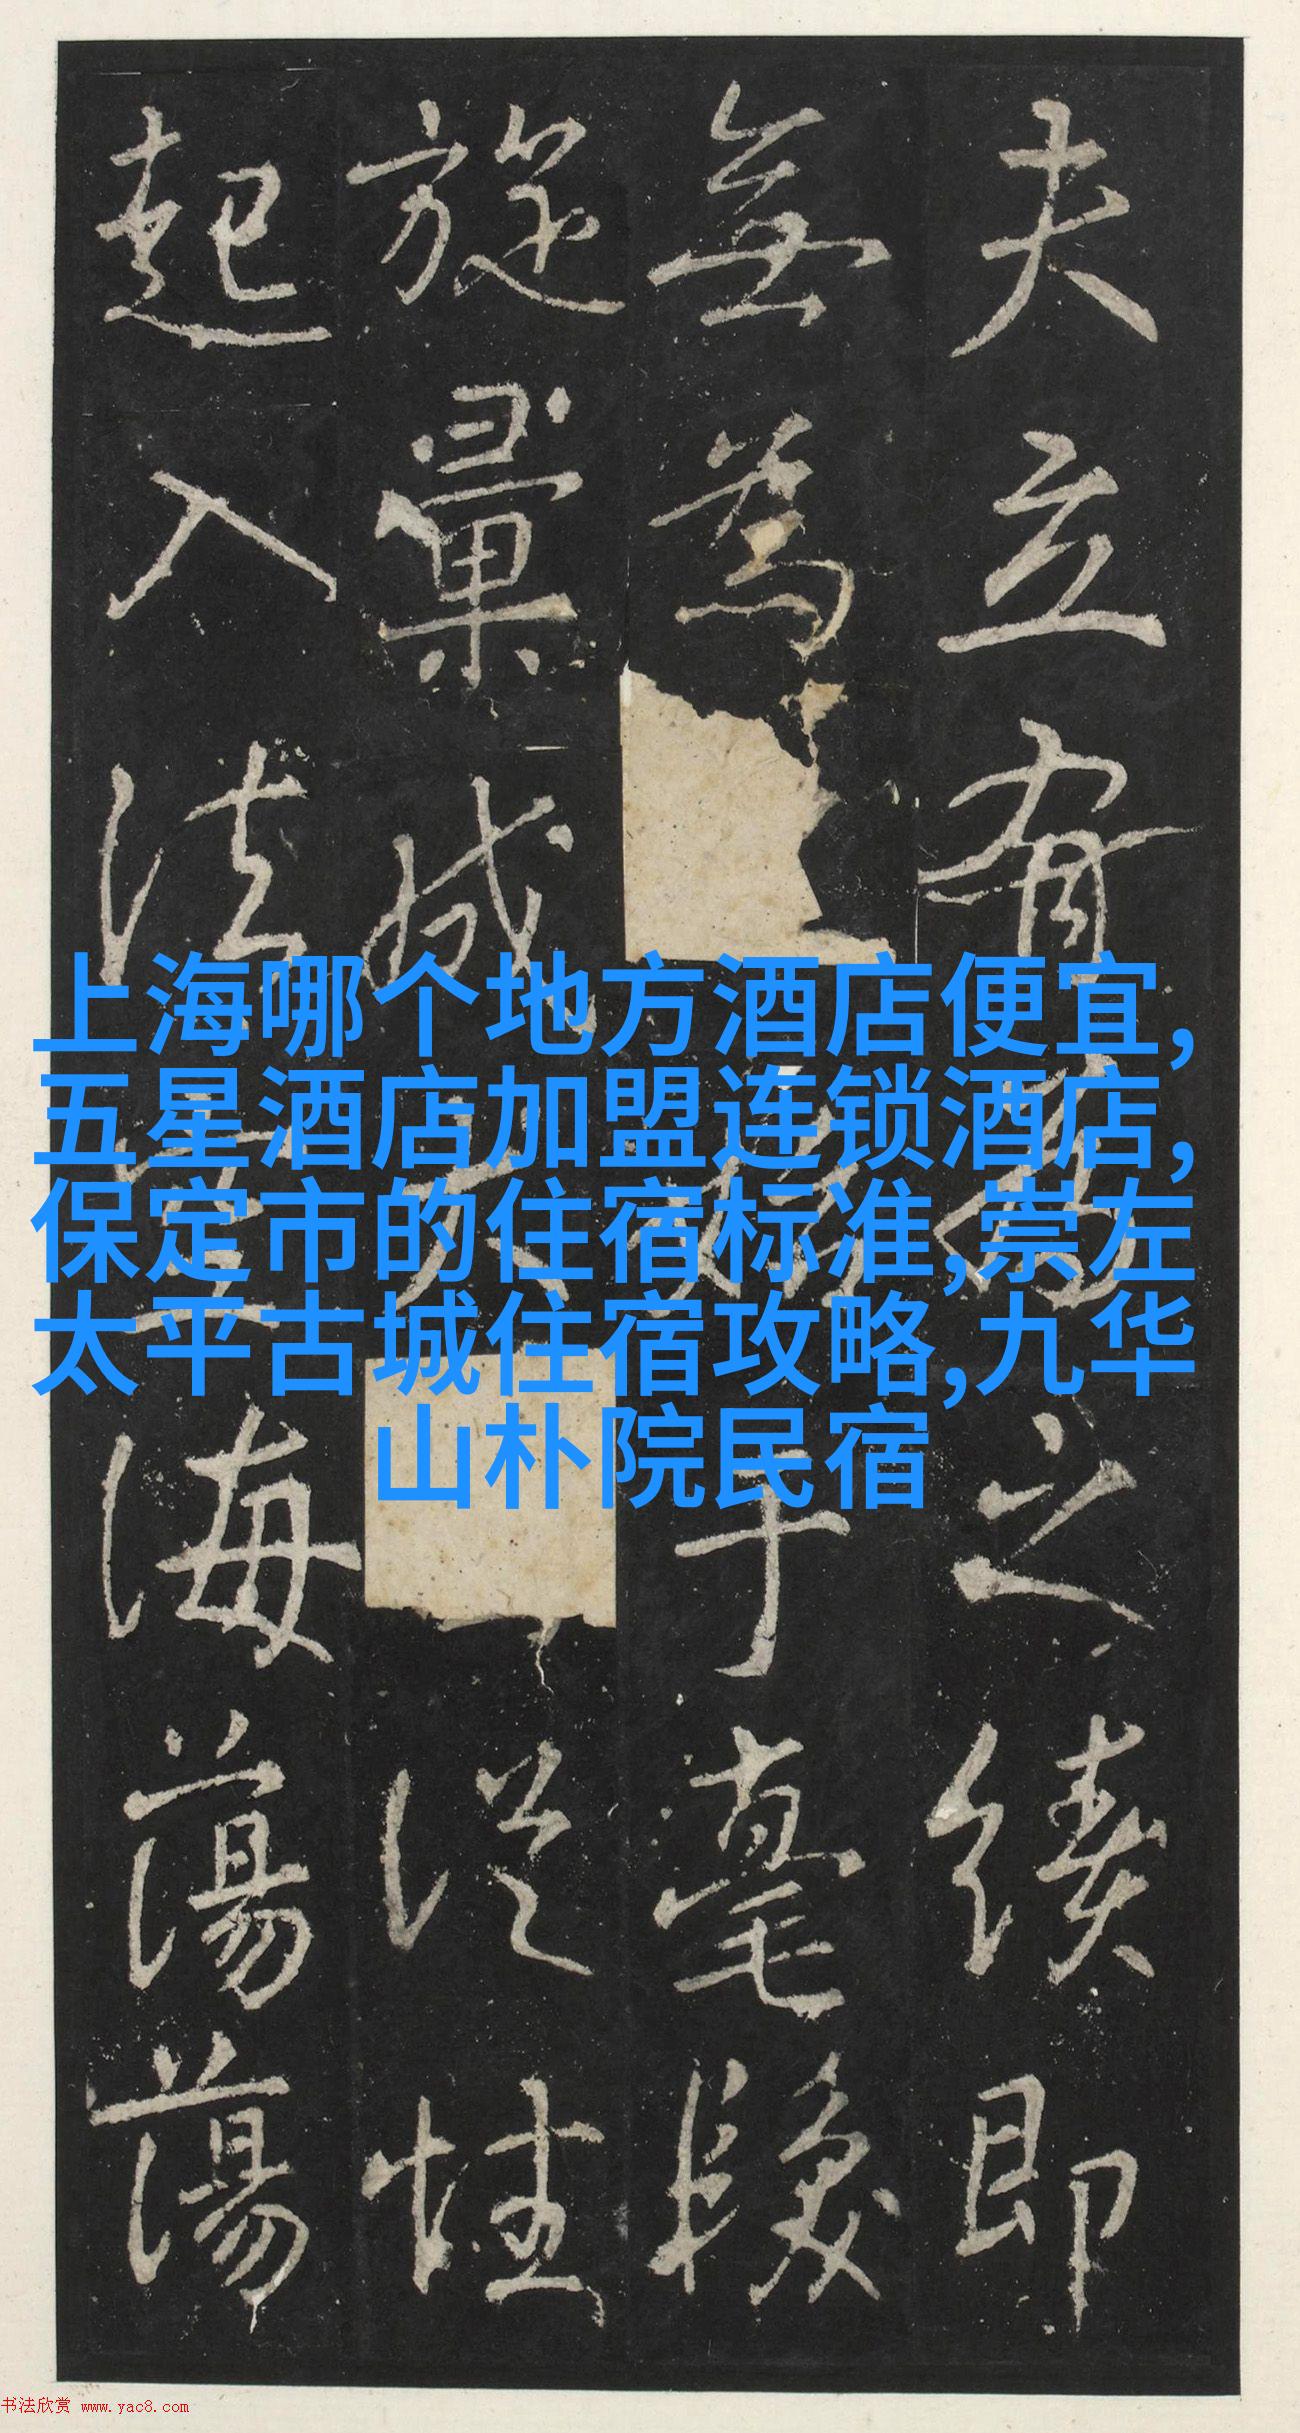 夫立之續即
無為于毫
旋成從性
起入法海蕩蕩
上海哪个地方酒店便宜,
五星酒店加盟连锁酒店,
保定市的住宿标准,崇左
太平古城住宿攻略,九华
山朴院民宿
书法欣赏 www.yac8.com